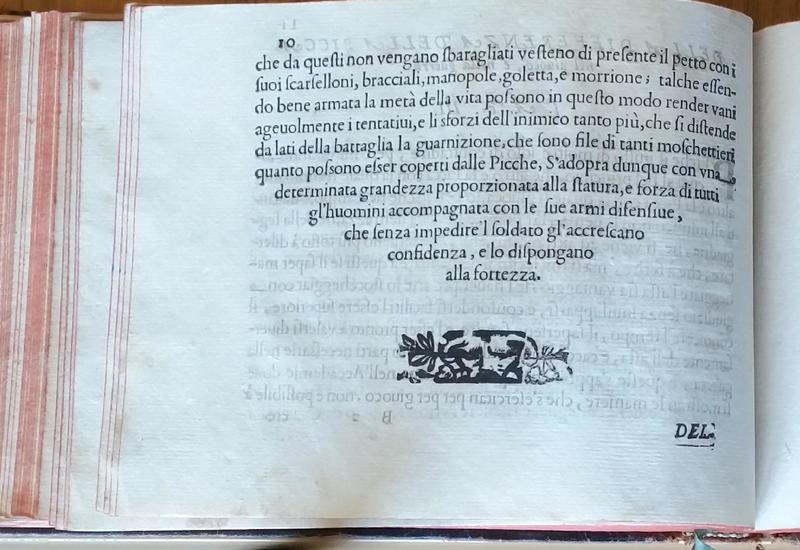 10
che da queſti non vengano ſbaragliati veſteno di preſente il petto con i
ſuoi ſcarſelloni, bracciali, manopole, goletta, e morrione; talche eſſen-
do bene armata la metà della vita poſsono in queſto modo render vani
ageuolmente i tentatiui, e li sforzi dell'inimico tanto più, che ſi diſtende
da lati della battaglia la guarnizione, che ſono file di tanti moſchettieri
quanto poſsono eſser coperti dalle Picche, S'adopra dunque con vna
determinata grandezza proporzionata alla ſtatura, e forza di tutti
gl'huomini accompagnata con le ſue armi difenſiue,
che ſenza impedire'l ſoldato gl'accreſcano
confidenza, e lo diſpongano
alla fortezza.
DEL